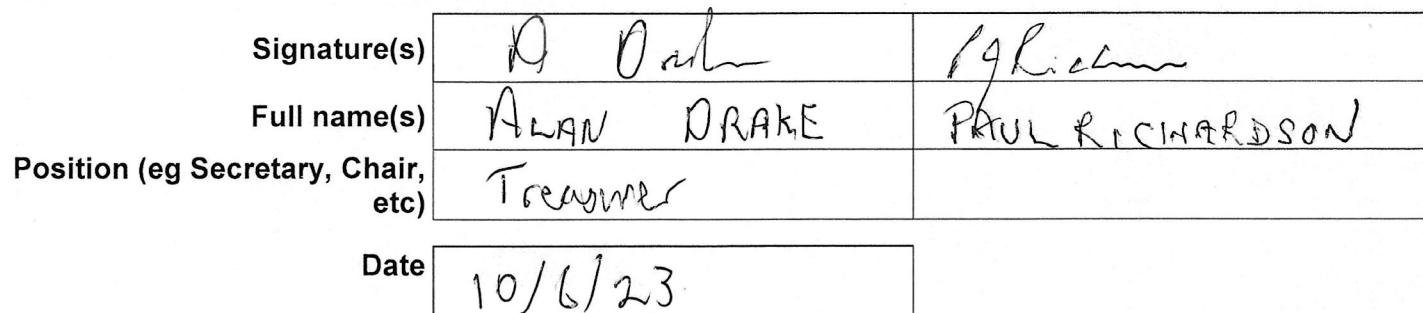 Signature(s) A Drake PJ Richardson
Full name(s) ALAN DRAKE PAUL RICHARDSON
Position (eg Secretary, Chair, Treasurer
etc)
Date 10/6/23